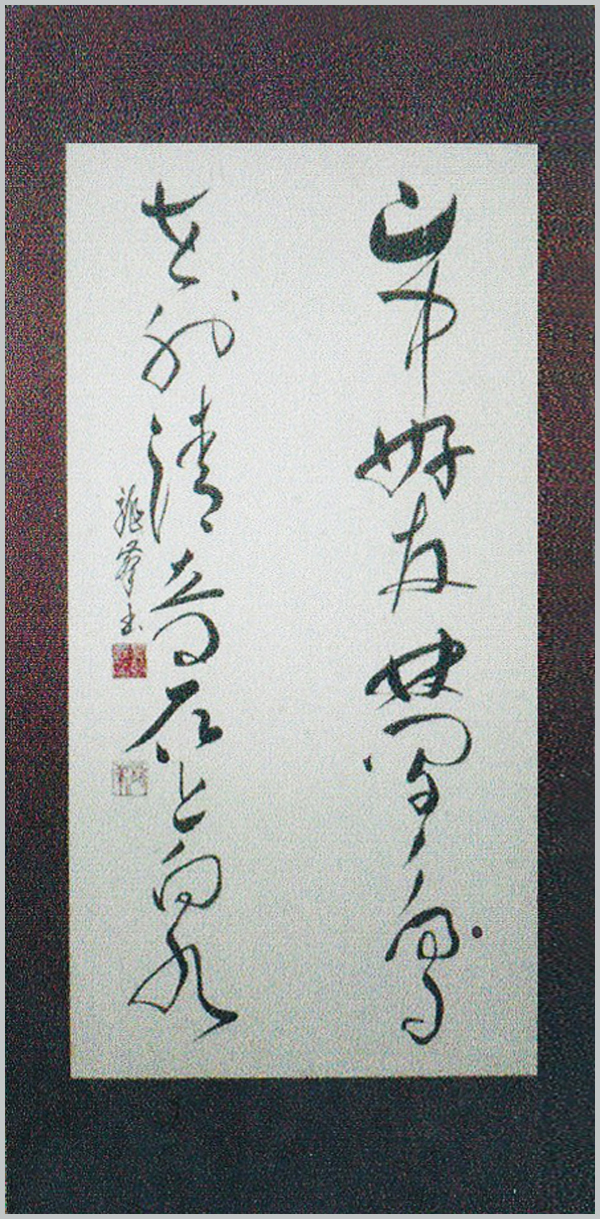 山中好友林間鳥
世外清音石上泉